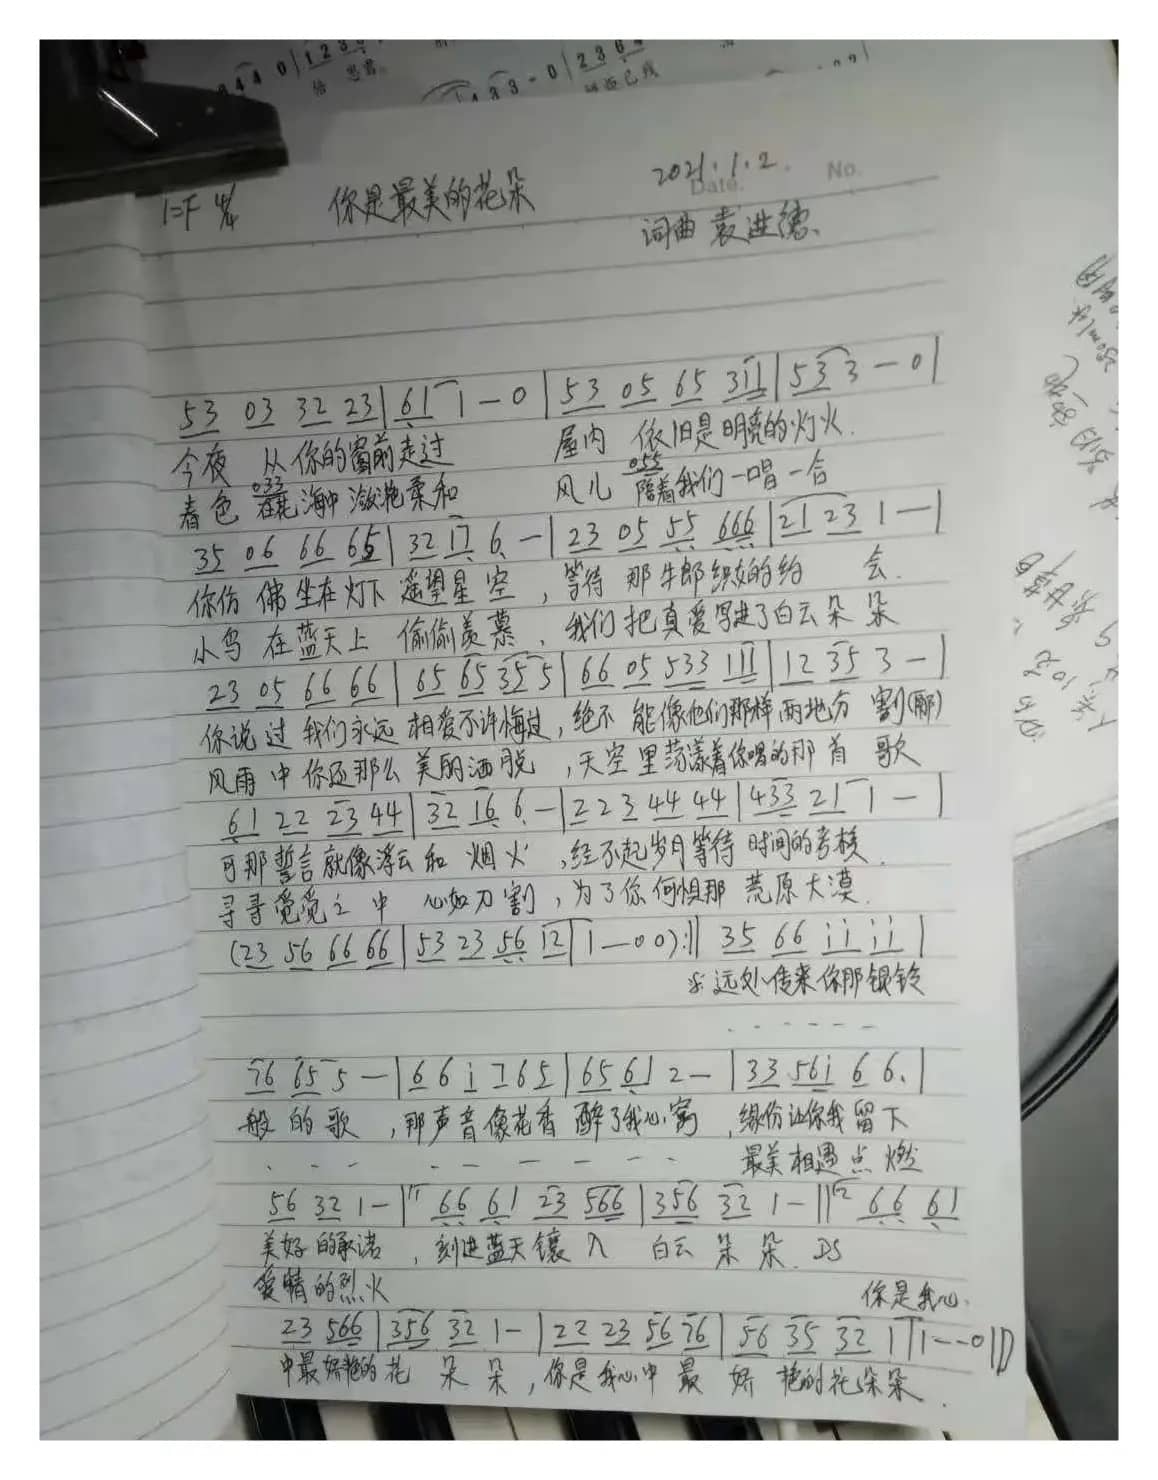 1=F 4/4 你是最美的花朵 2021.1.2.
Date. No.
词曲 袁进德
53 03 32 23 | 61 1 — 0 | 53 05 65 311 | 53 3 — 0 |
今夜 从你的窗前走过 屋内 依旧是明亮的灯火.
033 055
春色 在花海中潋滟柔和 风儿 陪着我们一唱一合
35 06 66 65 | 32 17 6. — | 23 05 55 666 | 21 23 1 — |
你仿佛坐在灯下遥望星空, 等待那牛郎织女的约会.
小鸟在蓝天上偷偷羡慕, 我们把真爱写进了白云朵朵
23 05 66 66 | 65 65 35 5 | 66 05 533 111 | 12 35 3 — |
你说过我们永远相爱不许悔过, 绝不能像他们那样两地分割(那)
风雨中你还那么美丽洒脱, 天空里荡漾着你唱的那首歌
61 22 23 44 | 32 16 6. — | 2 2 3 44 44 | 433 21 1 — |
可那誓言就像浮云和烟火, 经不起岁月等待时间的考核.
寻寻觅觅之中心如刀割, 为了你何惧那荒原大漠.
(23 56 66 66 | 53 23 56 12 | 1 — 0 0) :|| 35 66 ii ii |
远处传来你那银铃
76 65 5 — | 6 6 i 7 6 5 | 65 61 2 — | 33 56i 6 6. |
般的歌, 那声音像花香醉了我心窝, 缘份让你我留下
最美相遇点燃
56 32 1 — | 66 61 23 566 | 356 32 1 — || 66 61
美好的承诺, 刻进蓝天镶入白云朵朵. DS
爱情的烈火 你是我心.
23 566 | 356 32 1 — | 22 23 56 76 | 56 35 32 1 | 1 — — 0 ||
中最娇艳的花朵朵, 你是我心中最娇艳的花朵朵.